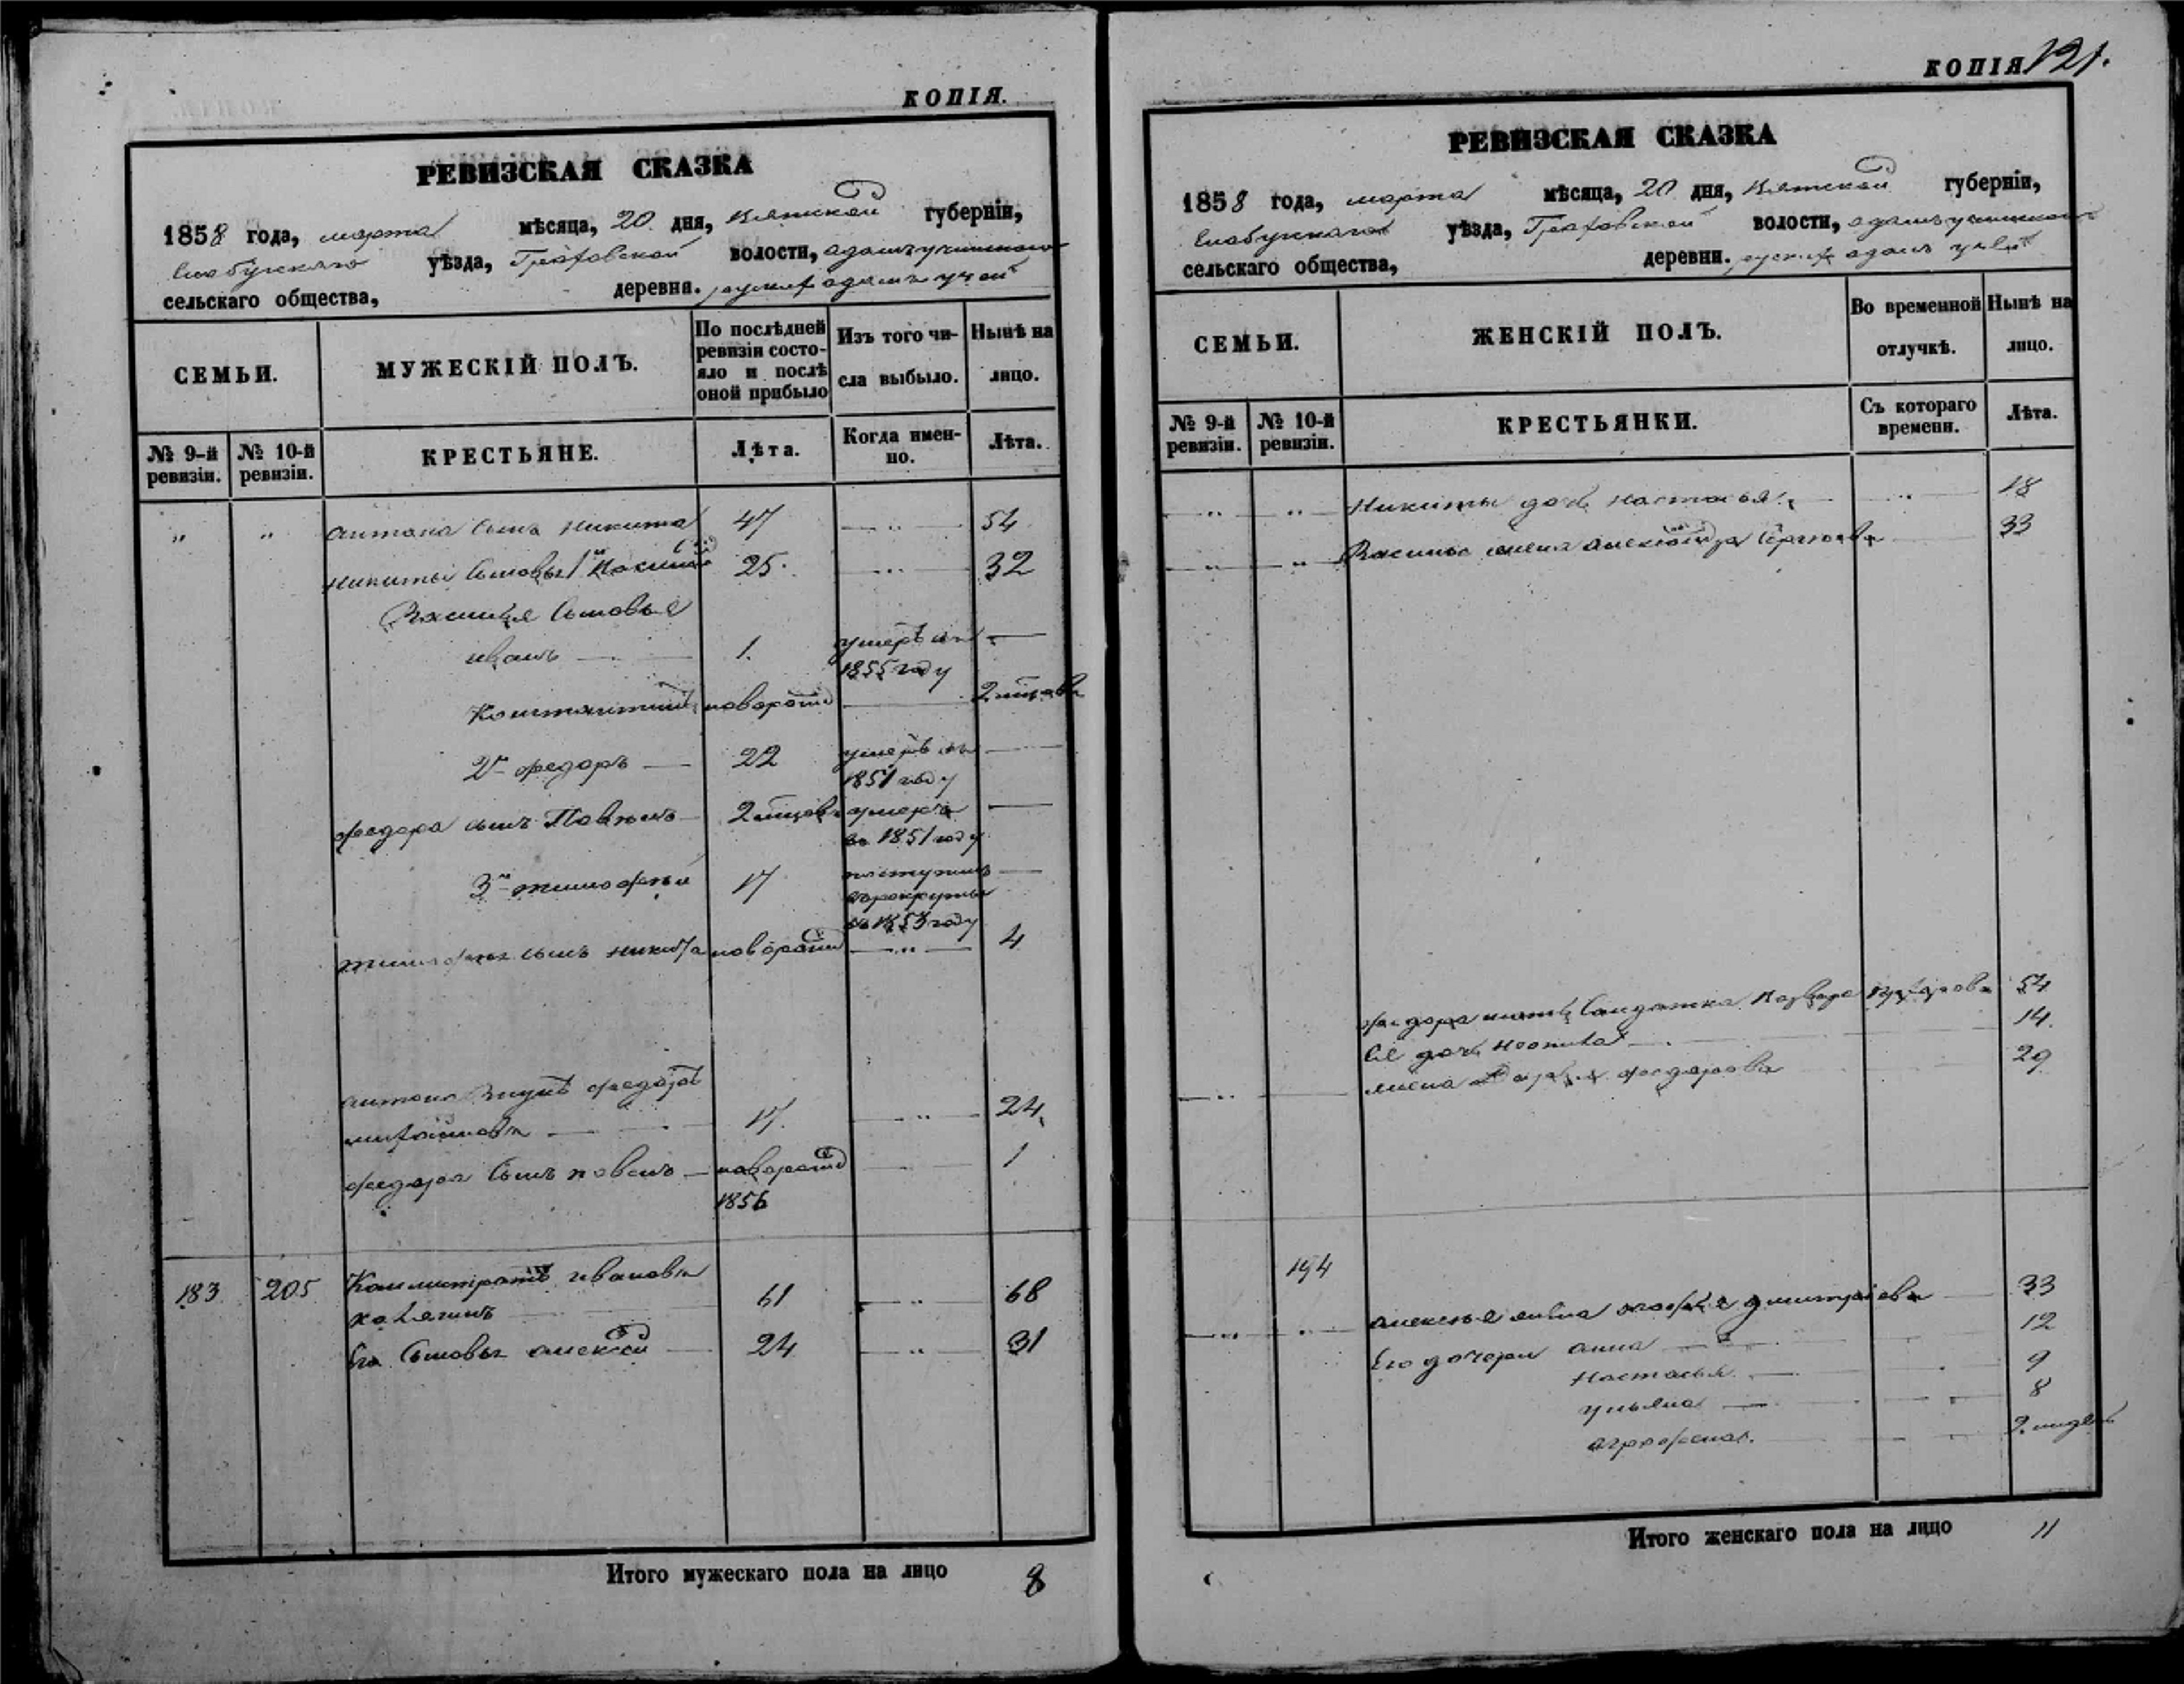 КОПІЯ.
РЕВИЗСКАЯ СКАЗКА
1858 года, марта мѣсяца, 20 дня, Вятской губерніи,
Елабужскаго уѣзда, Граховской волости,
сельскаго общества, деревни.
СЕМЬИ.
МУЖЕСКІЙ ПОЛЪ.
По послѣдней ревизіи состо-
яло и послѣ оной прибыло
Изъ того чи-
сла выбыло.
Нынѣ на
лицо.
№ 9-й ревизіи.
№ 10-й ревизіи.
КРЕСТЬЯНЕ.
Лѣта.
Когда имен-
но.
Лѣта.
" " антона сынъ никита 47 " 54
никиты сыновья 1й Василій 25 " 32
Василья сыновья
иванъ 1. умеръ въ
1855 году
Константинъ новорожд
2й федоръ 22 умеръ въ
1851 году
федора сынъ Павелъ умеръ
въ 1851 году
3й тимофей 17 поступилъ
въ рекруты
въ 1853 году
тимофея сынъ никита новорожд " 4
антона внукъ федоръ
17. " 24
федора сынъ павелъ новорожд 1
1856
183 205 Каллистратъ ивановъ
61 " 68
Его сыновья алексей 24 " 31
Итого мужескаго пола на лицо 8
КОПІЯ 121.
РЕВИЗСКАЯ СКАЗКА
1858 года, марта мѣсяца, 20 дня, Вятской губерніи,
Елабужскаго уѣзда, Граховской волости,
сельскаго общества, деревни.
СЕМЬИ.
ЖЕНСКІЙ ПОЛЪ.
Во временной
отлучкѣ.
Нынѣ на
лицо.
№ 9-й ревизіи.
№ 10-й ревизіи.
КРЕСТЬЯНКИ.
Съ котораго
времени.
Лѣта.
" " Никиты дочь настасья " 18
" " Василья жена александра 33
федора мать Солдатка 54
Ея дочь 14.
" жена федорова 29
194
" " алексея жена дмитріева 33
Его дочери анна 12
настасья 9
ульяна 8
агрофена 2 недель
Итого женскаго пола на лицо 11